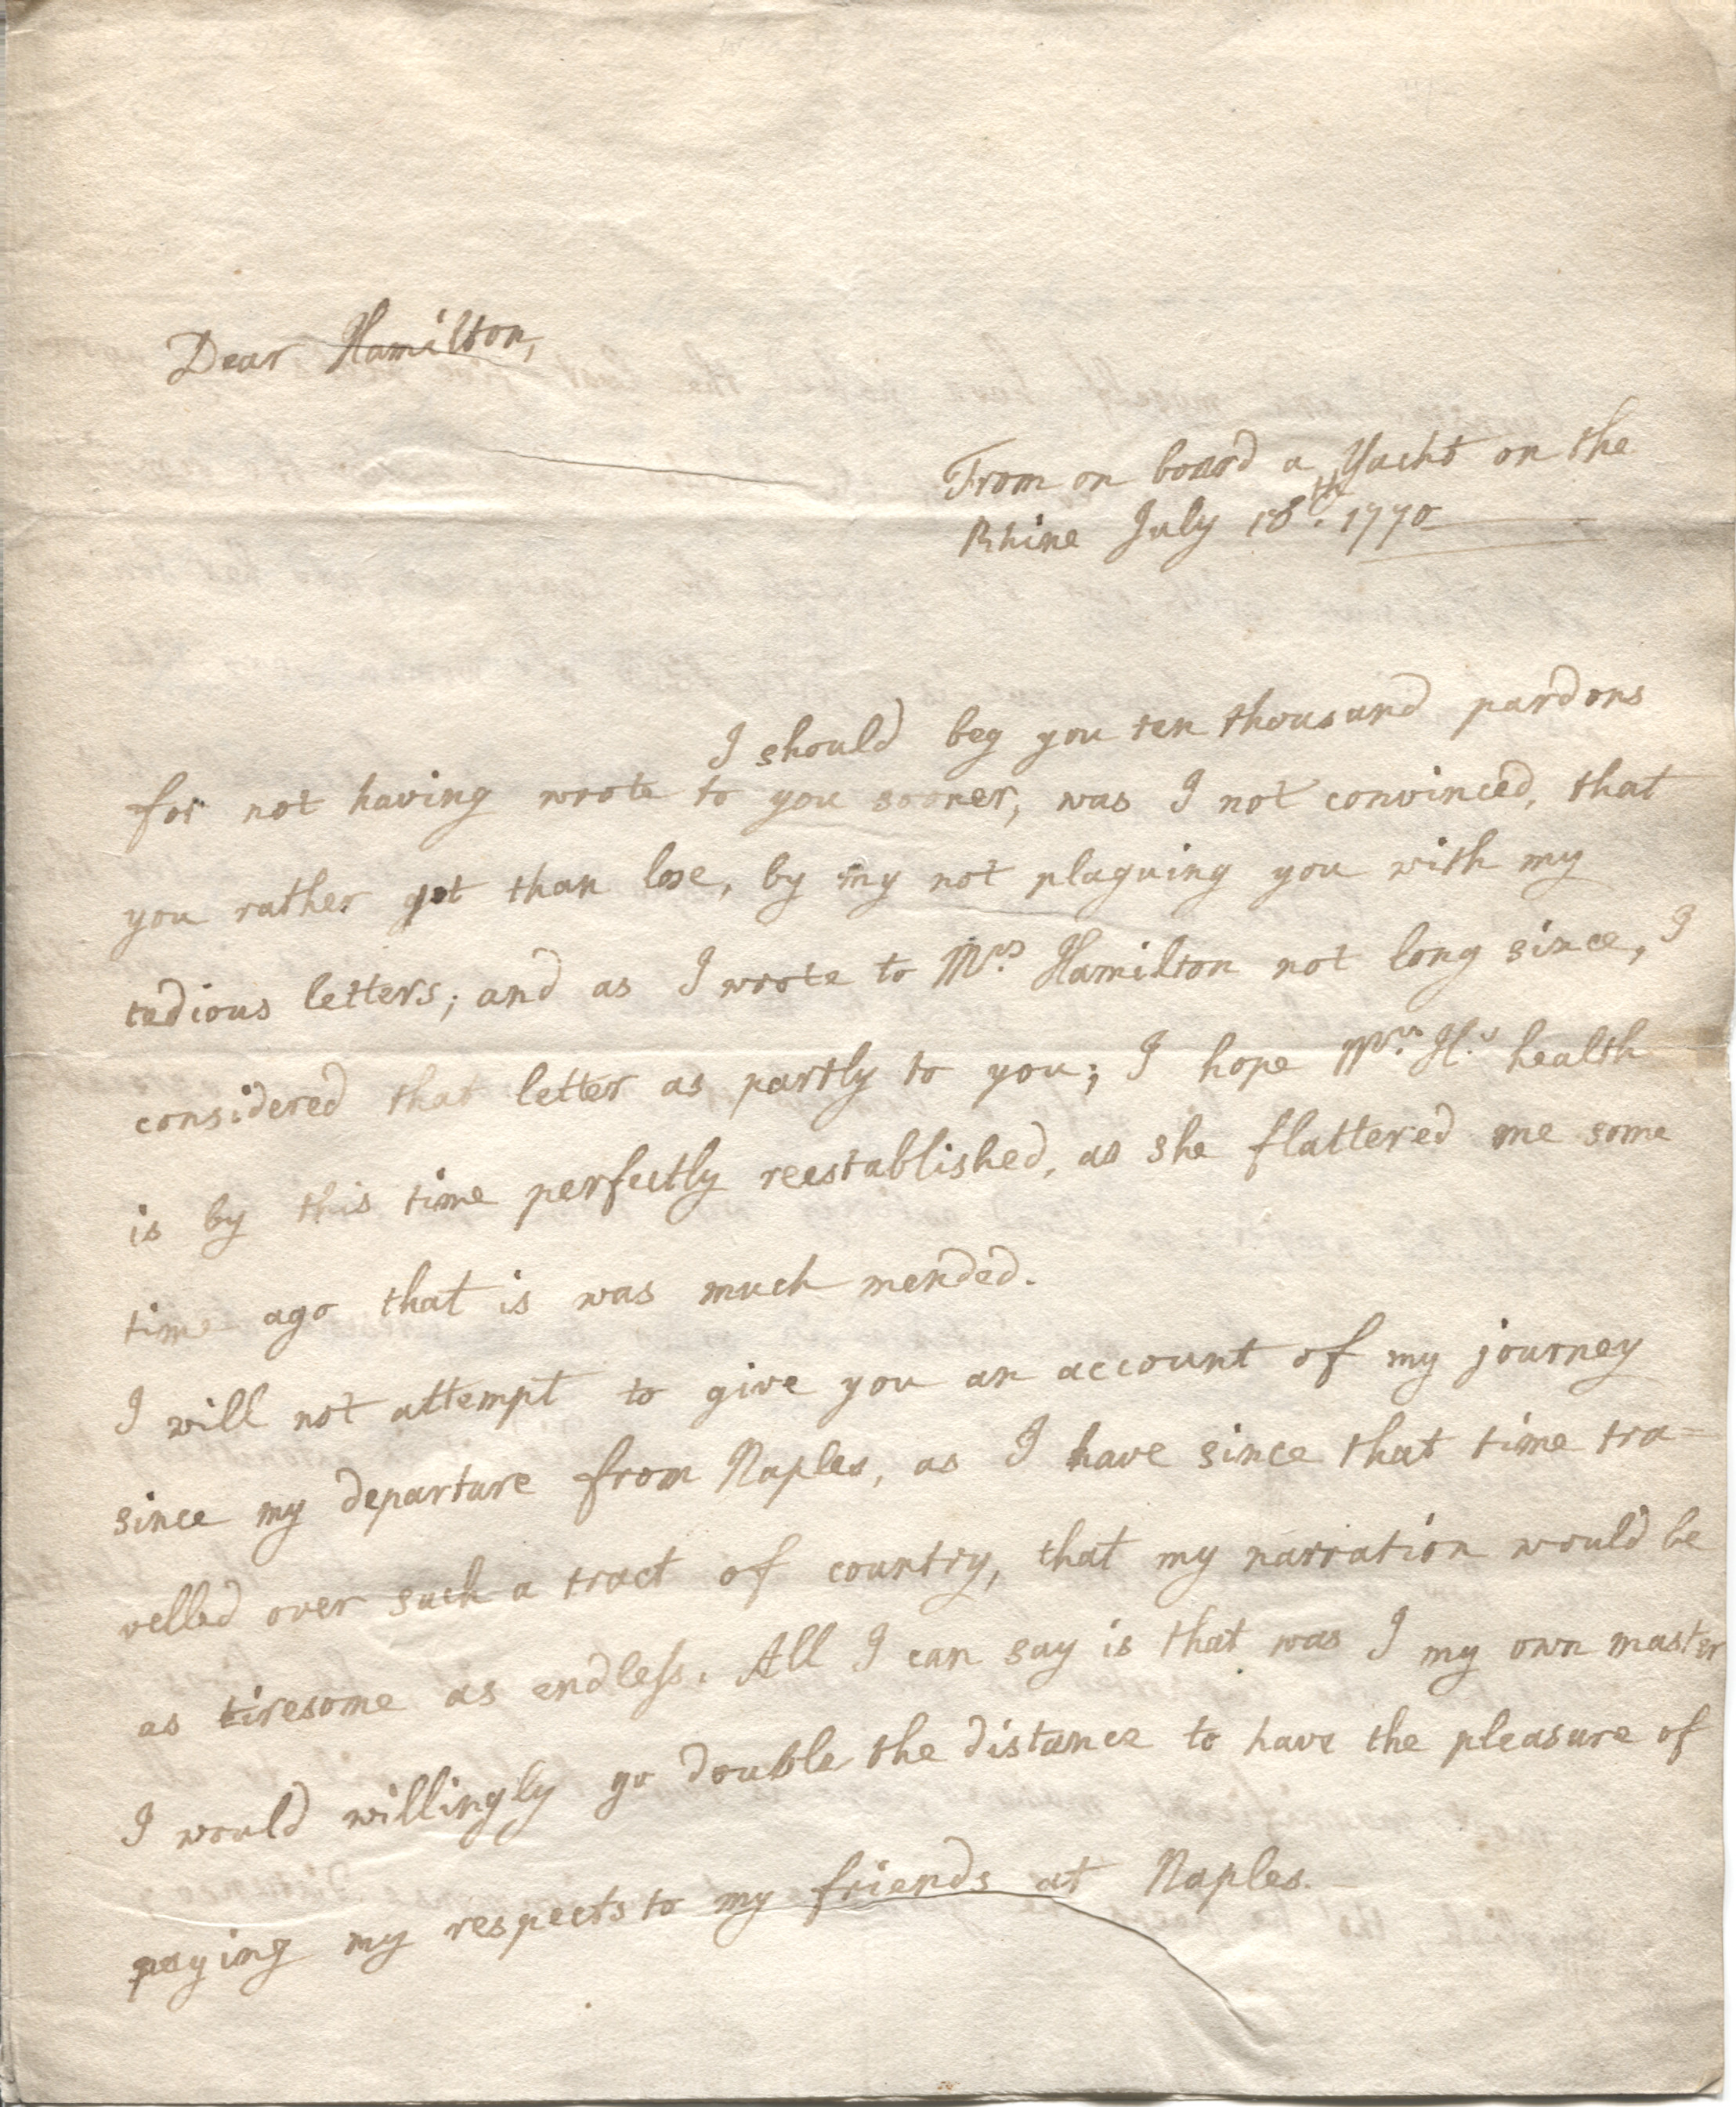 Dear Hamilton,
From on board a Yacht on the
Rhine July 18th. 1770
I should beg you ten thousand pardons
for not having wrote to you sooner, was I not convinced, that
you rather got than lose, by my not plaguing you with my
tedious letters; and as I wrote to Mrs. Hamilton not long since, I
considered that letter as partly to you; I hope Mrs. H.s health
is by this time perfectly reestablished, as she flattered me some
time ago that is was much mended.
I will not attempt to give you an account of my journey
since my departure from Naples, as I have since that time tra=
velled over such a tract of country, that my narration would be
as tiresome as endleſs. All I can say is that was I my own master
I would willingly go double the distance to have the pleasure of
paying my respects to my friends at Naples.